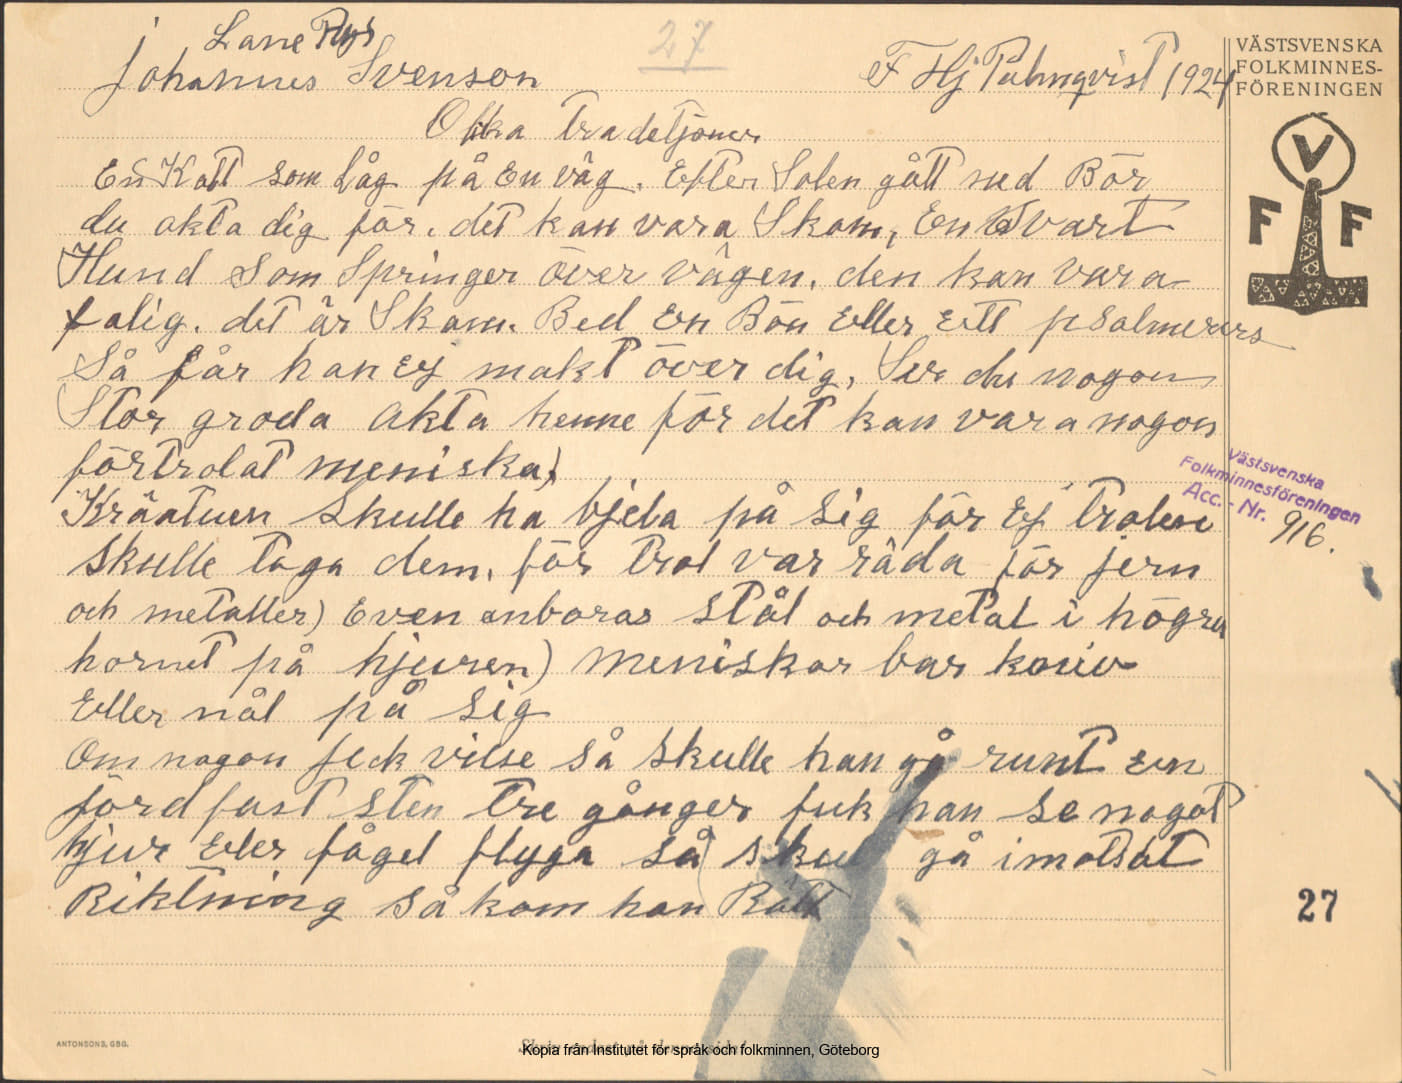 Lane Ryr
27
Johannes Svenson
F Hj Palmqvist 1924
VÄSTSVENSKA
FOLKMINNES-
FÖRENINGEN
Olika tradetjoner
En Katt som Låg på En väg. Efter Solen gått ned Bör
du akta dig för. det kan vara Skam, En Svart
Hund Som Springer över vägen. den kan vara
falig. det är Skam. Bed En Bön Eller Ett psalmvers
Så får han Ej makt över dig, Ser du nogon
Stor groda akta henne för det kan vara nogon
förtrolat meniska)
Kräatuen Skulle ha bjela på Sig för Ej trolen
Skulle taga dem. för trol var räda för jern
och metaller) Even anboras Stål och metal i högra
hornet på hjuren) Meniskor bar kniv
Eller nål på Sig
Om nogon feck vilse Så Skulle han gå runt En
jördfast Sten tre gånger fick han Se nogot
hjur Eler fågel flyga Så gå imotsat
Riktning Så kom han Rätt
V
F F
Västsvenska
Folkminnesföreningen
Acc. - Nr. 916.
27
ANTONSONS, GBG.
Kopia från Institutet för språk och folkminnen, Göteborg